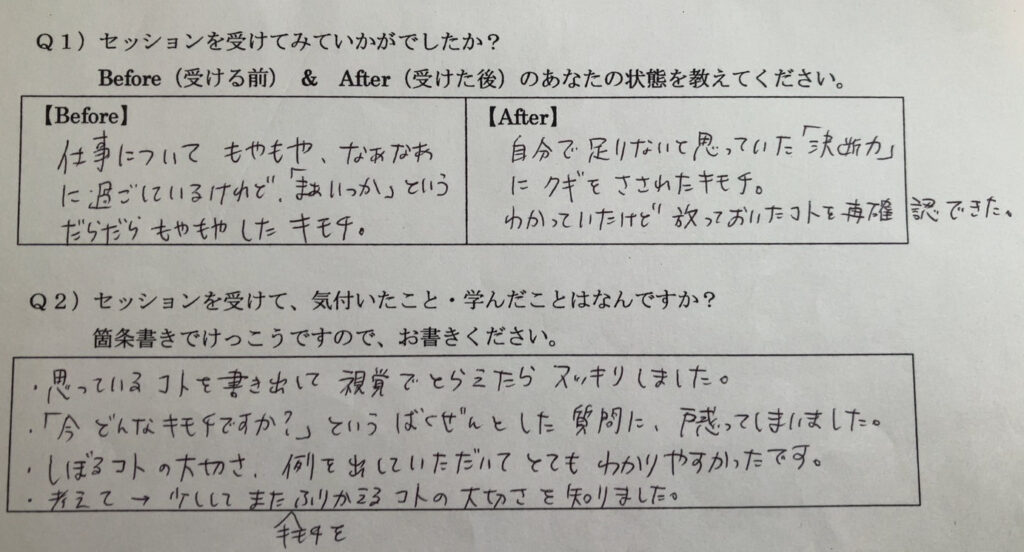 Q1）セッションを受けてみていかがでしたか？
Before（受ける前） & After（受けた後）のあなたの状態を教えてください。
【Before】
仕事について もやもや、なぁなぁ
に過ごしているけれど、「まぁいっか」という
だらだら もやもや した キモチ。
【After】
自分で 足りないと思っていた「決断力」
に クギを さされたキモチ。
わかっていたけど 放っておいたコトを再確認できた。
Q2）セッションを受けて、気付いたこと・学んだことはなんですか？
箇条書きでけっこうですので、お書きください。
・思っている コトを書き出して 視覚で とらえたら スッキリ しました。
・「今 どんなキモチですか？」という ばくぜんとした 質問に、戸惑ってしまいました。
・しぼるコトの大切さ、例を出していただいて とても わかりやすかったです。
・考えて → 少しして また ふりかえる コトの 大切さを知りました。
キモチを